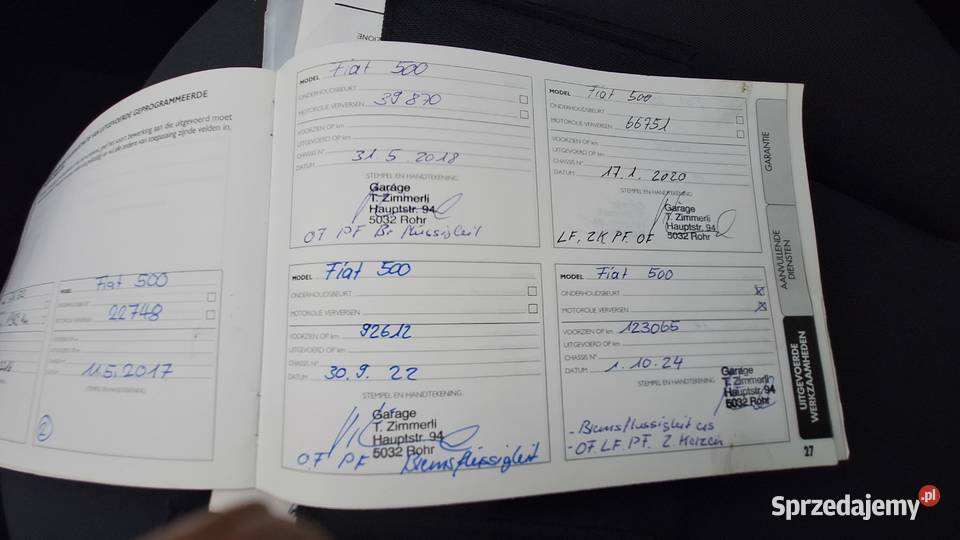 UITGEVOERDE GEPROGRAMMEERDE
MODEL Fiat 500
22748
11.5.2017
STEMPEL EN HANDTEKENING
2
MODEL Fiat 500
ONDERHOUDSBEURT
MOTOROLIE VERVERSEN 39870
VOORZIEN OP km
UITGEVOERD OP km
CHASSIS N°
DATUM 31 5 2018
STEMPEL EN HANDTEKENING
Garage
T. Zimmerli
Hauptstr. 94
5032 Rohr
OF PF Br flüssigkeit
MODEL Fiat 500
ONDERHOUDSBEURT
MOTOROLIE VERVERSEN 66751
VOORZIEN OP km
UITGEVOERD OP km
CHASSIS N°
DATUM 17.1.2020
STEMPEL EN HANDTEKENING
Garage
T. Zimmerli
Hauptstr. 94
5032 Rohr
LF, ZK PF. OF
MODEL Fiat 500
ONDERHOUDSBEURT
MOTOROLIE VERVERSEN
VOORZIEN OP km 92612
UITGEVOERD OP km
CHASSIS N°
DATUM 30.9.22
STEMPEL EN HANDTEKENING
Garage
T. Zimmerli
Hauptstr. 94
5032 Rohr
O.F PF Bremsflüssigkeit
MODEL Fiat 500
ONDERHOUDSBEURT
MOTOROLIE VERVERSEN
VOORZIEN OP km 123065
UITGEVOERD OP km
CHASSIS N°
DATUM 1.10.24
STEMPEL EN HANDTEKENING
Garage
T. Zimmerli
Hauptstr. 94
5032 Rohr
- Bremsflüssigkeit
- OF. LF. PF. Z. Kerzen
GARANTIE
AANVULLENDE
DIENSTEN
UITGEVOERDE
WERKZAAMHEDEN
27
Sprzedajemy.pl